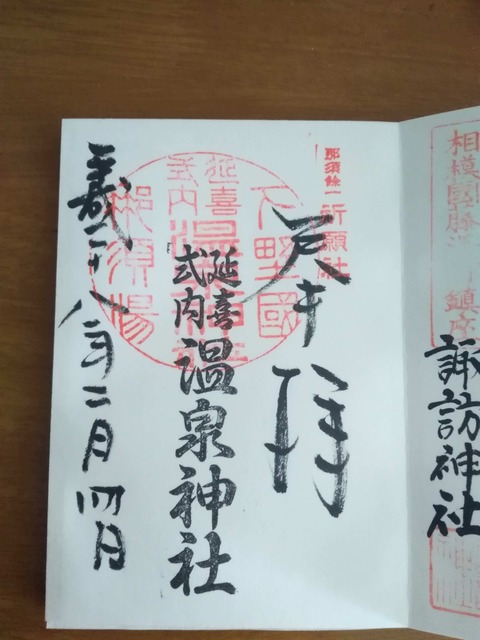 相模國勝
鎮座
諏訪神社
那須餘一
祈願社
奉拝
下野國
延喜
式内
温泉神社
那須湯
延喜
式内
温泉神社
二十八年二月四日